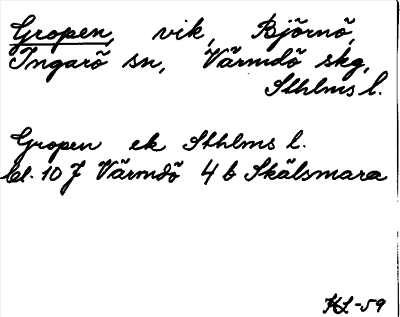 Gropen, vik, Björnö,
Ingarö sn, Värmdö skg,
Sthlms l.
Gropen ek Sthlms l.
bl. 10 J Värmdö 4 b Skälsmara
KL-59